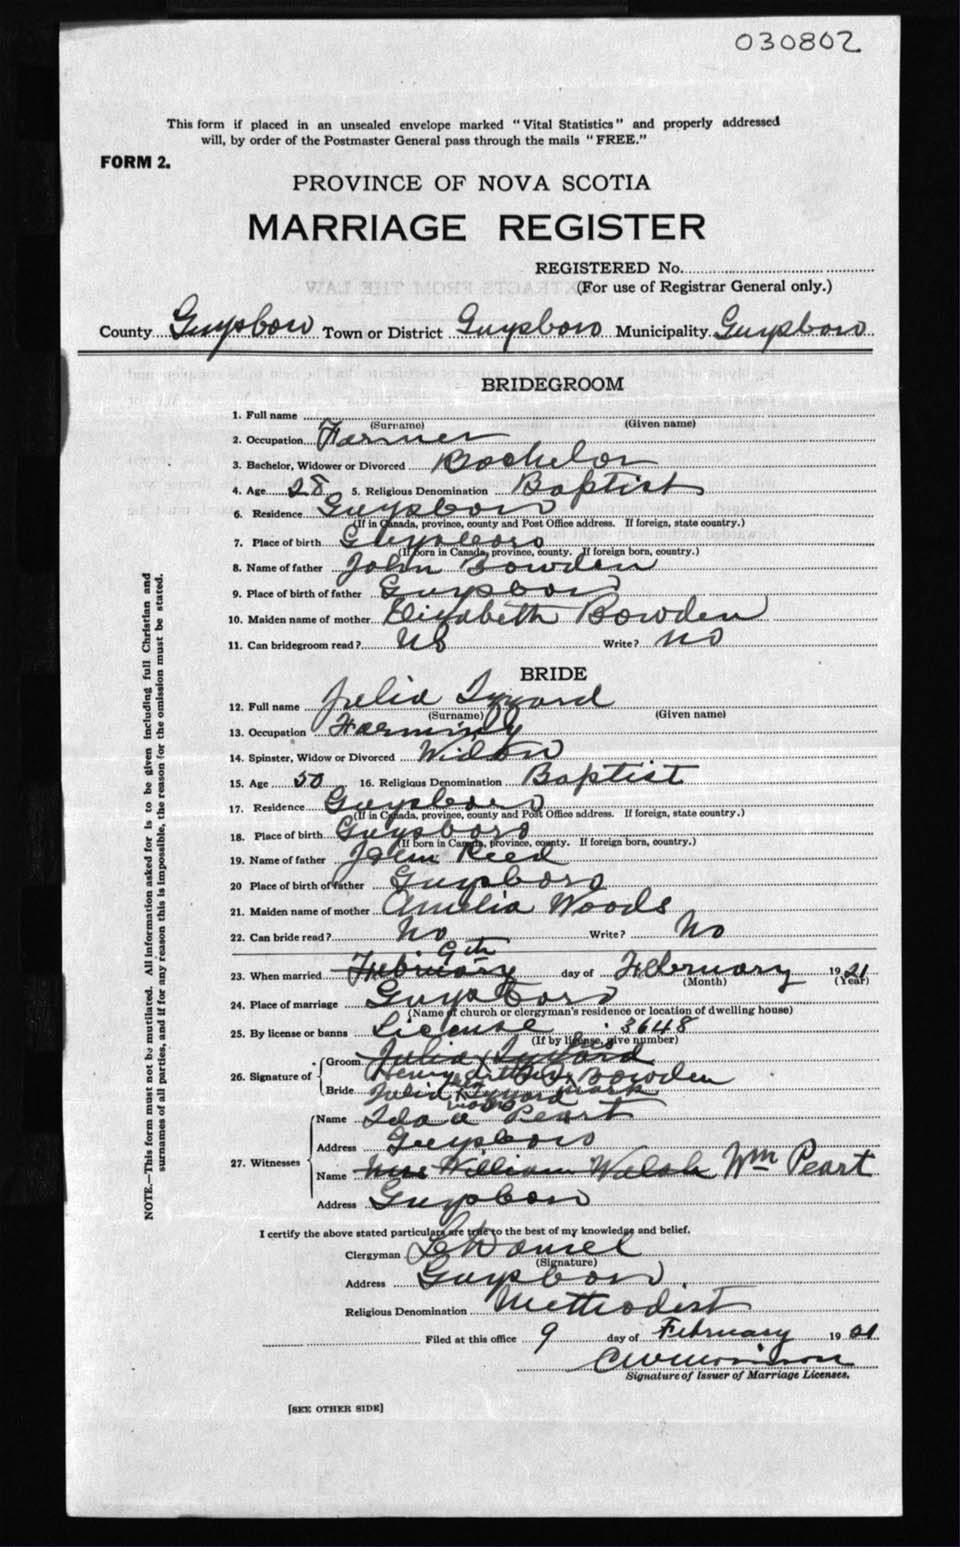 030802
This form if placed in an unsealed envelope marked "Vital Statistics" and properly addressed
will, by order of the Postmaster General pass through the mails "FREE."
FORM 2.
PROVINCE OF NOVA SCOTIA
MARRIAGE REGISTER
REGISTERED No.
(For use of Registrar General only.)
County Guysboro Town or District Guysboro Municipality Guysboro
BRIDEGROOM
1. Full name
(Surname) (Given name)
2. Occupation Farmer
3. Bachelor, Widower or Divorced Bachelor
4. Age 28 5. Religious Denomination Baptist
6. Residence Guysboro
(If in Canada, province, county and Post Office address. If foreign, state country.)
7. Place of birth Guysboro
(If born in Canada, province, county. If foreign born, country.)
8. Name of father John Bowden
9. Place of birth of father Guysboro
10. Maiden name of mother Elizabeth Bowden
11. Can bridegroom read? No Write? No
BRIDE
12. Full name Julia Tyzard
(Surname) (Given name)
13. Occupation Farming
14. Spinster, Widow or Divorced Widow
15. Age 50 16. Religious Denomination Baptist
17. Residence Guysboro
(If in Canada, province, county and Post Office address. If foreign, state country.)
18. Place of birth Guysboro
(If born in Canada, province, county. If foreign born, country.)
19. Name of father John Reed
20 Place of birth of father Guysboro
21. Maiden name of mother Amelia Woods
22. Can bride read? No Write? No
23. When married February 9th day of February 1921
(Month) (Year)
24. Place of marriage Guysboro
(Name of church or clergyman's residence or location of dwelling house)
25. By license or banns License 3648
(If by license, give number)
26. Signature of Groom Julia Tyzard
Henry Bowden
Bride Julia Tyzard mark
27. Witnesses Name Ida a Peart
Address Guysboro
Name Mrs William Walsh Wm Peart
Address Guysboro
I certify the above stated particulars are true to the best of my knowledge and belief.
Clergyman
(Signature)
Address Guysboro
Religious Denomination Methodist
Filed at this office 9 day of February 1921
Signature of Issuer of Marriage Licenses.
[SEE OTHER SIDE]
NOTE.—This form must not be mutilated. All information asked for is to be given including full Christian and
surnames of all parties, and if for any reason this is impossible, the reason for the omission must be stated.